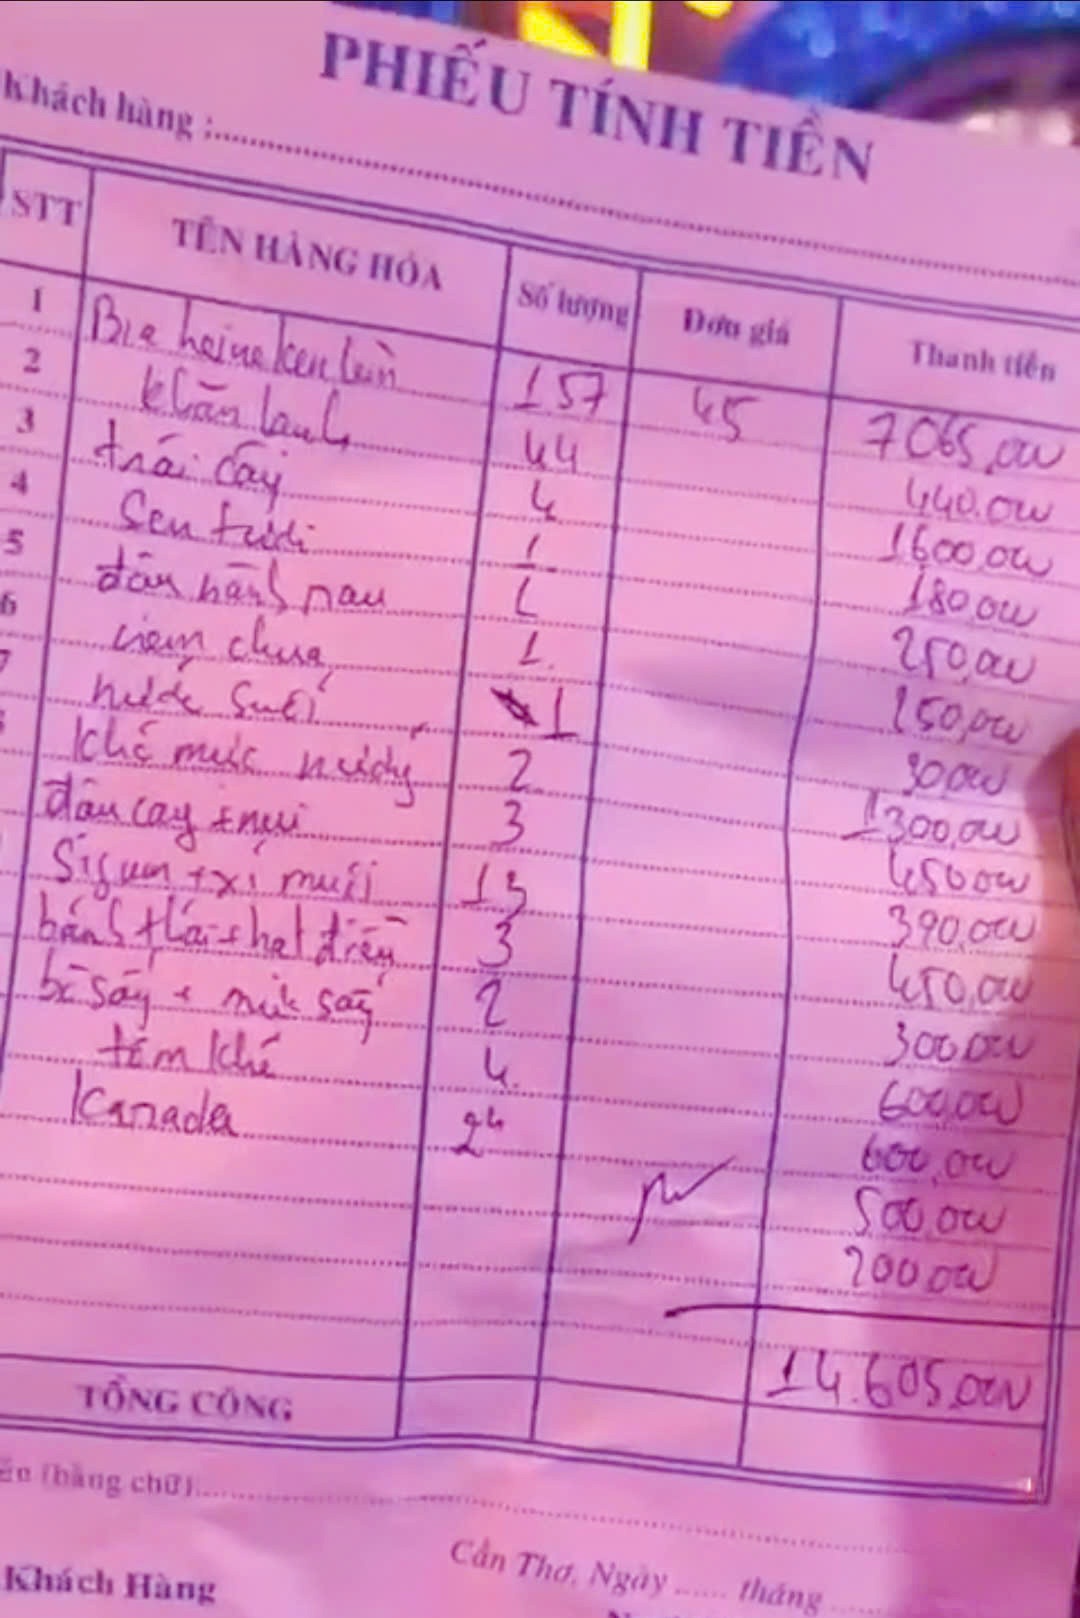 PHIẾU TÍNH TIỀN
Khách hàng :
STT TÊN HÀNG HÓA Số lượng Đơn giá Thanh tiền
1 Bia heineken lùn 157 45 7065,000
2 khăn lạnh 44 440.000
3 trái cây 4 1600.000
4 Sen tươi 1 180,000
5 đậu hành nau 1 250,000
6 chua 1. 250,000
7 nước suối 1 30,000
Khô mực nướng 2 1300,000
đậu cay + nui 3 450.000
+ xí muối 13 390,000
bánh thái + hạt điều 3 450,000
bò sấy + mít sấy 2 300.000
tôm khô 4. 600,000
Kanada 24 600,000
500,000
200,000
14.605,000
TỔNG CỘNG
(bằng chữ)
Cần Thơ, Ngày ...... tháng
Khách Hàng